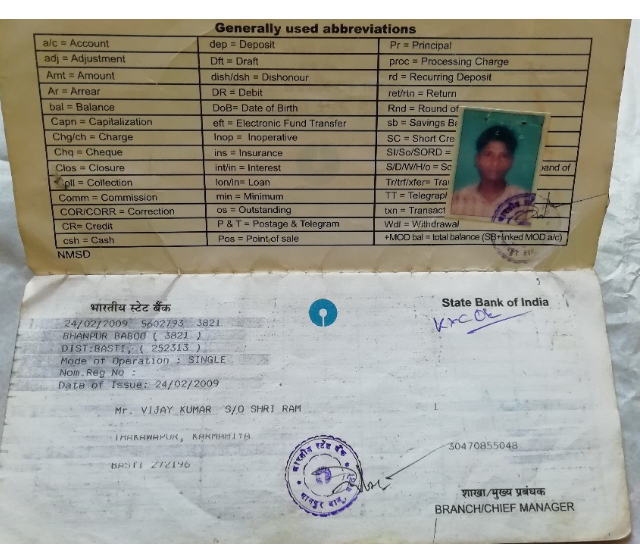 Generally used abbreviations
a/c = Account dep = Deposit Pr = Principal
adj = Adjustment Dft = Draft proc = Processing Charge
Amt = Amount dish/dsh = Dishonour rd = Recurring Deposit
Ar = Arrear DR = Debit ret/rtn = Return
bal = Balance DoB= Date of Birth Rnd = Round of
Capn = Capitalization eft = Electronic Fund Transfer sb = Savings Ba
Chg/ch = Charge Inop = Inoperative SC = Short Cre
Chq = Cheque ins = Insurance SI/So/SORD =
Clos = Closure int/in = Interest S/D/W/H/o = So and of
Coll = Collection lon/ln= Loan Tr/trf/xfer= Tra
Comm = Commission min = Minimum TT = Telegrap
COR/CORR = Correction os = Outstanding txn = Transact
CR= Credit P & T = Postage & Telegram Wdl = Withdrawal
csh = Cash Pos = Point of sale +MOD bal = total balance (SB+linked MOD a/c)
NMSD
भारतीय स्टेट बैंक State Bank of India
24/02/2009 5602793 3821
BHANPUR BABOO ( 3821 )
DIST:BASTI, ( 252313 )
Mode of Operation : SINGLE
Nom.Reg No :
Date of Issue: 24/02/2009
Mr. VIJAY KUMAR S/O SHRI RAM 1
KARMAHITA
30470855048
BASTI 272196
शाखा/मुख्य प्रबंधक
BRANCH/CHIEF MANAGER